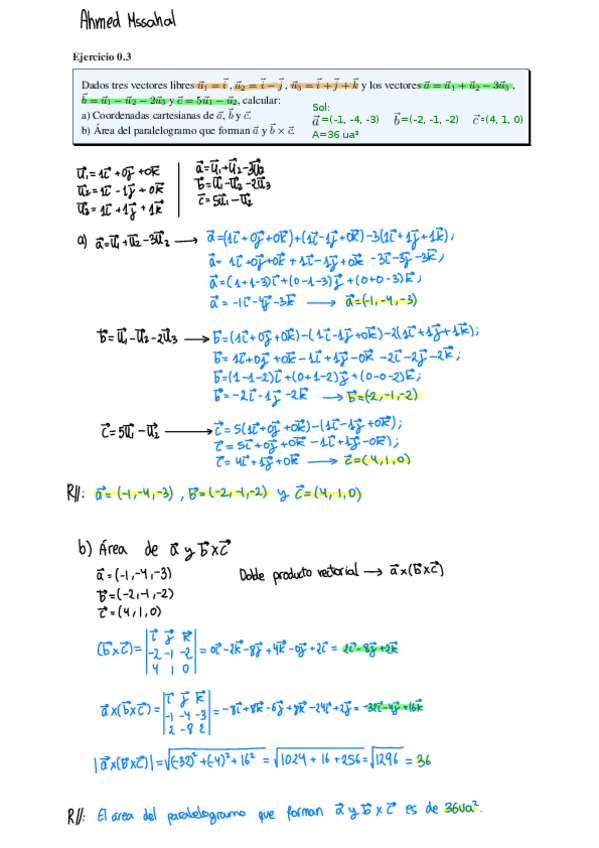 Ahmed Mssahal
Ejercicio 0.3
Dados tres vectores libres u⃗₁ = i⃗, u⃗₂ = i⃗ − j⃗, u⃗₃ = i⃗ + j⃗ + k⃗ y los vectores a⃗ = u⃗₁ + u⃗₂ − 3u⃗₃,
b⃗ = u⃗₁ − u⃗₂ − 2u⃗₃ y c⃗ = 5u⃗₁ − u⃗₂, calcular:
a) Coordenadas cartesianas de a⃗, b⃗ y c⃗.
b) Área del paralelogramo que forman a⃗ y b⃗ × c⃗.
Sol:
a⃗=(-1, -4, -3) b⃗=(-2, -1, -2) c⃗=(4, 1, 0)
A=36 ua²
u⃗₁ = 1i⃗ + 0j⃗ + 0k⃗
u⃗₂ = 1i⃗ - 1j⃗ + 0k⃗
u⃗₃ = 1i⃗ + 1j⃗ + 1k⃗
a⃗ = u⃗₁ + u⃗₂ - 3u⃗₃
b⃗ = u⃗₁ - u⃗₂ - 2u⃗₃
c⃗ = 5u⃗₁ - u⃗₂
a) a⃗ = u⃗₁ + u⃗₂ - 3u⃗₃ → a⃗ = (1i⃗ + 0j⃗ + 0k⃗) + (1i⃗ - 1j⃗ + 0k⃗) - 3(1i⃗ + 1j⃗ + 1k⃗);
a⃗ = 1i⃗ + 0j⃗ + 0k⃗ + 1i⃗ - 1j⃗ + 0k⃗ - 3i⃗ - 3j⃗ - 3k⃗;
a⃗ = (1+1-3)i⃗ + (0-1-3)j⃗ + (0+0-3)k⃗;
a⃗ = -1i⃗ - 4j⃗ - 3k⃗ → a⃗ = (-1, -4, -3)
b⃗ = u⃗₁ - u⃗₂ - 2u⃗₃ → b⃗ = (1i⃗ + 0j⃗ + 0k⃗) - (1i⃗ - 1j⃗ + 0k⃗) - 2(1i⃗ + 1j⃗ + 1k⃗);
b⃗ = 1i⃗ + 0j⃗ + 0k⃗ - 1i⃗ + 1j⃗ - 0k⃗ - 2i⃗ - 2j⃗ - 2k⃗;
b⃗ = (1-1-2)i⃗ + (0+1-2)j⃗ + (0-0-2)k⃗;
b⃗ = -2i⃗ - 1j⃗ - 2k⃗ → b⃗ = (-2, -1, -2)
c⃗ = 5u⃗₁ - u⃗₂ → c⃗ = 5(1i⃗ + 0j⃗ + 0k⃗) - (1i⃗ - 1j⃗ + 0k⃗);
c⃗ = 5i⃗ + 0j⃗ + 0k⃗ - 1i⃗ + 1j⃗ - 0k⃗;
c⃗ = 4i⃗ + 1j⃗ + 0k⃗ → c⃗ = (4, 1, 0)
R//: a⃗ = (-1, -4, -3), b⃗ = (-2, -1, -2) y c⃗ = (4, 1, 0)
b) Área de a⃗ y b⃗ x c⃗
a⃗ = (-1, -4, -3) Doble producto vectorial → a⃗ x (b⃗ x c⃗)
b⃗ = (-2, -1, -2)
c⃗ = (4, 1, 0)
(b⃗ x c⃗) = | i⃗ j⃗ k⃗ |
| -2 -1 -2 | = 0i⃗ - 2k⃗ - 8j⃗ + 4k⃗ - 0j⃗ + 2i⃗ = 2i⃗ - 8j⃗ + 2k⃗
| 4 1 0 |
a⃗ x (b⃗ x c⃗) = | i⃗ j⃗ k⃗ |
| -1 -4 -3 | = -8i⃗ + 8k⃗ - 6j⃗ + 8k⃗ - 24i⃗ + 2j⃗ = -32i⃗ - 4j⃗ + 16k⃗
| 2 -8 2 |
|a⃗ x (b⃗ x c⃗)| = √((-32)² + (-4)² + 16²) = √(1024 + 16 + 256) = √1296 = 36
R//: El área del paralelogramo que forman a⃗ y b⃗ x c⃗ es de 36ua².